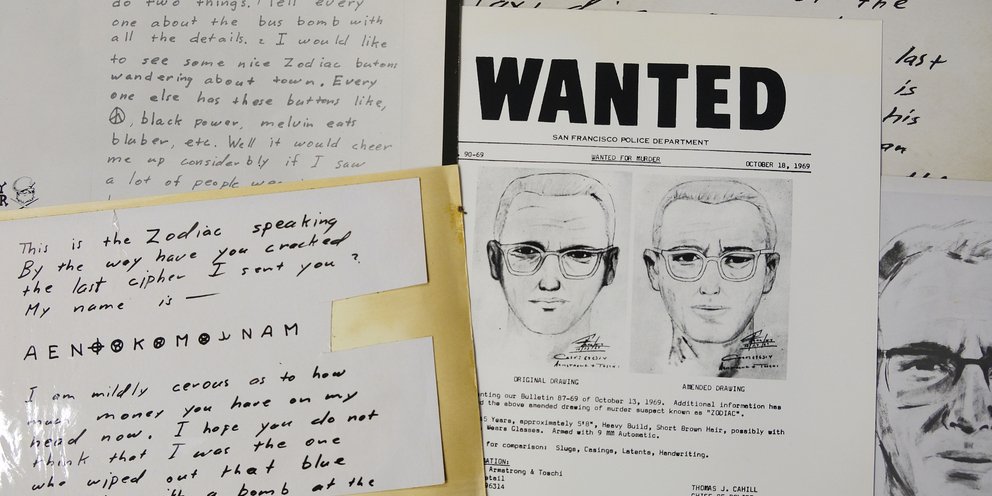 do two things. Tell every
one about the bus bomb with
all the details. 2 I would like
to see some nice Zodiac butons
wandering about town. Every
one else has these buttons like,
☮, black power, melvin eats
bluber, etc. Well it would cheer
me up considerbly if I saw
a lot of people
This is the Zodiac speaking
By the way have you cracked
the last cipher I sent you ?
My name is —
A E N ⊕ ⊗ K ⊗ M ⊗ ⅃ N A M
I am mildly cerous as to how
much money you have on my
head now. I hope you do not
think that I was the one
who wiped out that blue
with a bomb at the
WANTED
SAN FRANCISCO POLICE DEPARTMENT
90-69 WANTED FOR MURDER OCTOBER 18, 1969
ORIGINAL DRAWING AMENDED DRAWING
nting our Bulletin 87-69 of October 13, 1969. Additional information has
d the above amended drawing of murder suspect known as "ZODIAC".
45 Years, approximately 5'8", Heavy Build, Short Brown Hair, possibly with
Wears Glasses. Armed with 9 MM Automatic.
for comparison: Slugs, Casings, Latents, Handwriting.
ATION:
Armstrong & Toschi
etail
96314
THOMAS J. CAHILL
the
last
is
his
an